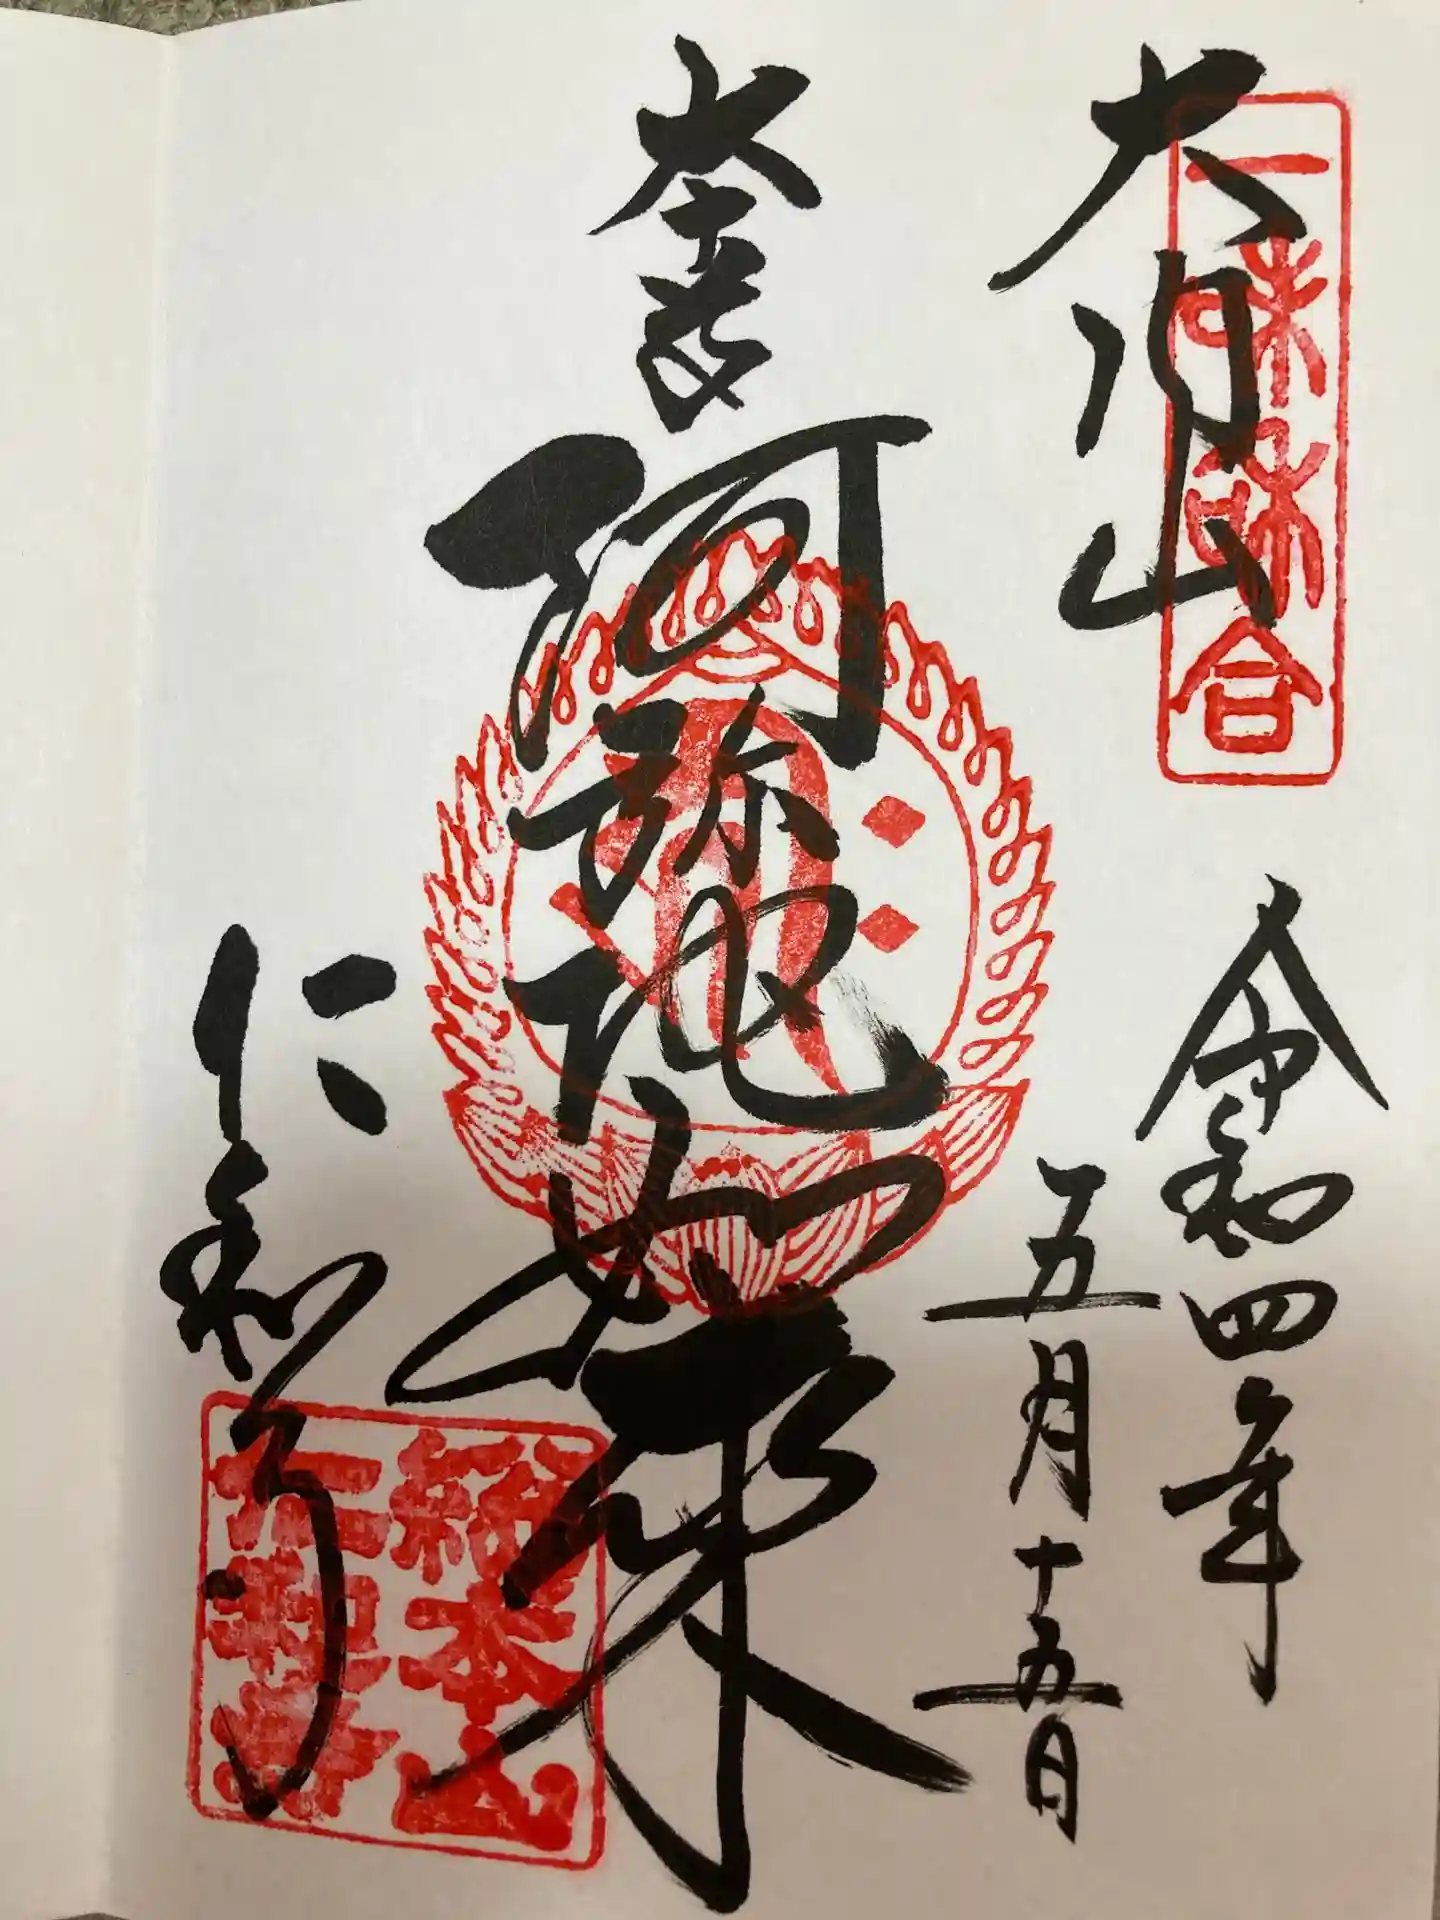 大内山
一味和合
令和四年
五月十五日
奉拝
阿弥陀如来
仁和寺
総本山
仁和寺